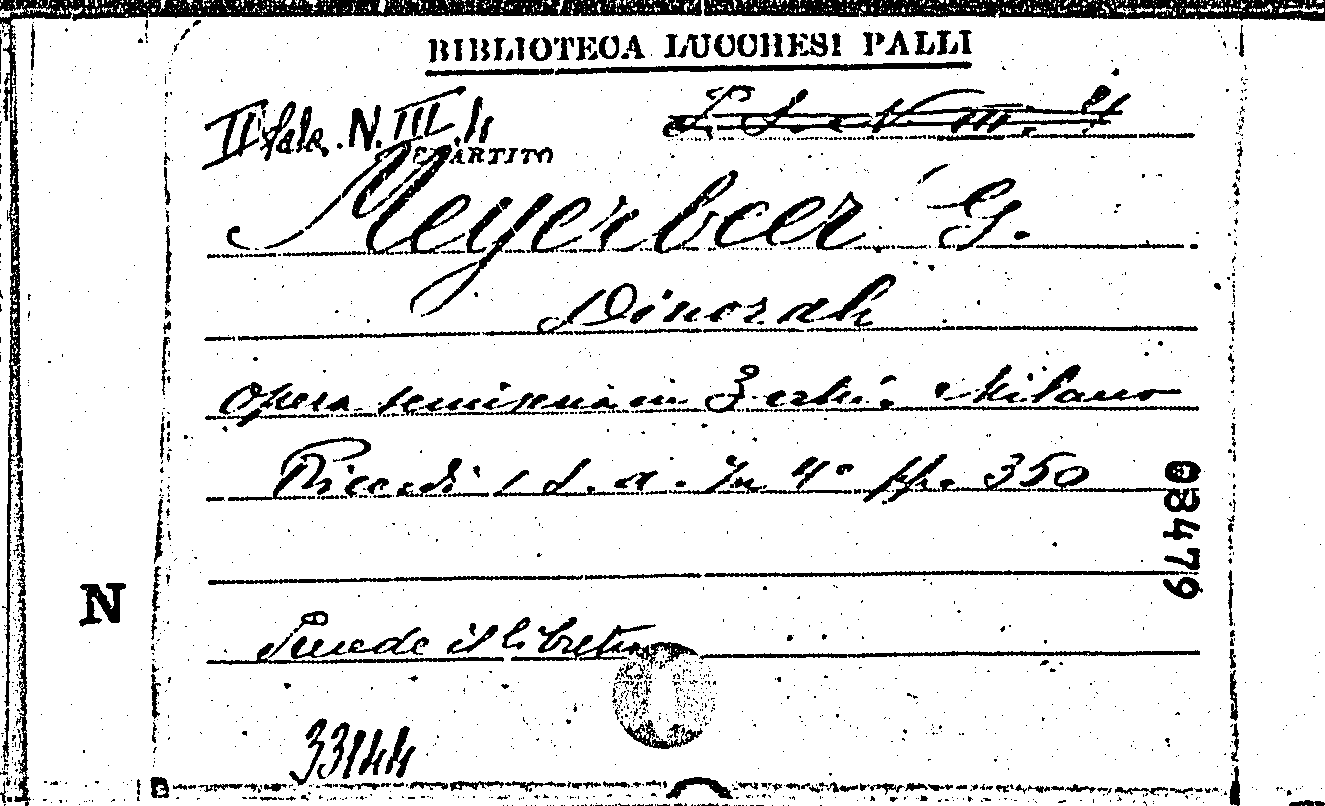 BIBLIOTECA LUCCHESI PALLI
II Sala. N. III. 4
SPARTITO
Meyerbeer G.
Dinorah
Opera semiseria in 3 atti. Milano
Ricordi, s. a. In 4° pp. 350
08479
N
Precede il libretto
33144